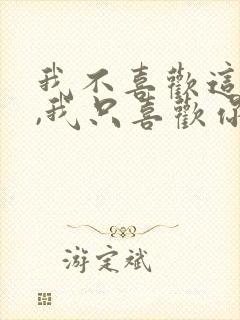 我不喜歡這
,我只喜歡你
游定斌